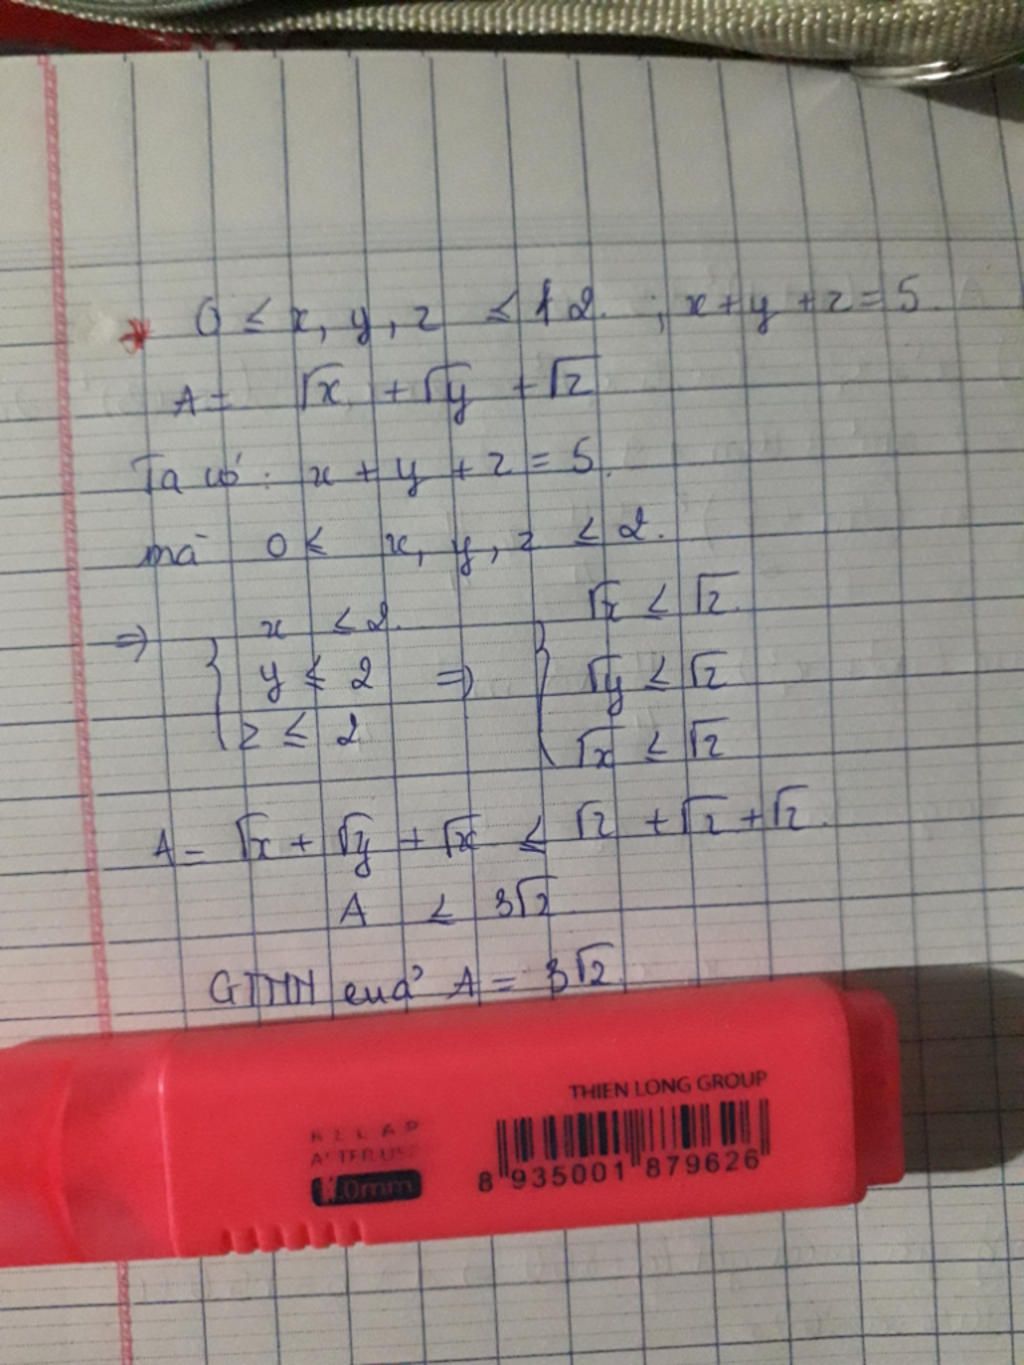 0 ≤ x, y, z ≤ 2. ; x + y + z = 5.
A = √x + √y + √z
Ta có : x + y + z = 5.
mà 0 ≤ x, y, z ≤ 2.
⇒ { x ≤ 2. ⇒ { √x ≤ √2.
y ≤ 2 √y ≤ √2
z ≤ 2 √x ≤ √2
A = √x + √y + √x ≤ √2 + √2 + √2.
A ≤ 3√2
GTNN của A = 3√2.
THIEN LONG GROUP
8 935001 879626